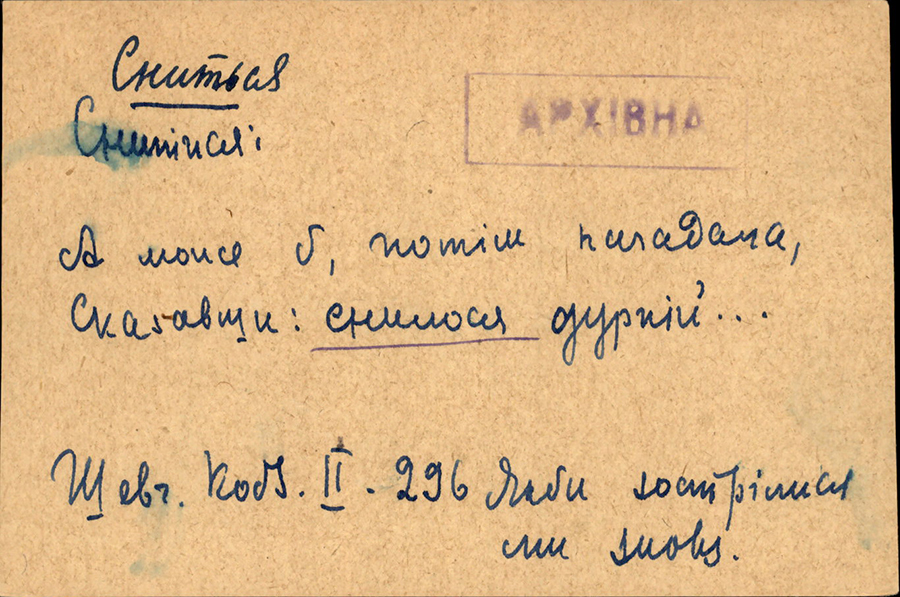 Сниться
АРХІВНА
Снитися:
А може б, потім нагадала,
Сказавши: снилося дурній...
Шевч. Кобз. II. 296 Якби зострілися
ми знову.